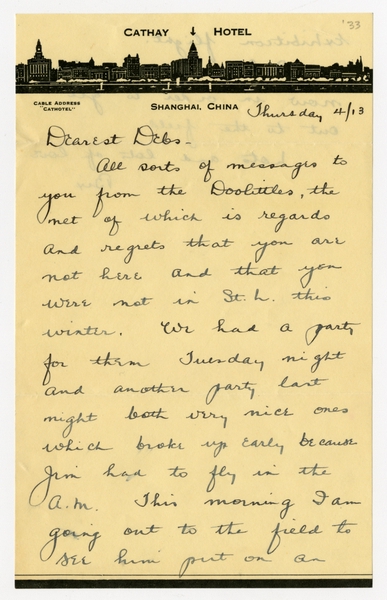 '33
CATHAY HOTEL
CABLE ADDRESS
"CATHOTEL"
SHANGHAI, CHINA
Thursday 4/13
Dearest Debs-
All sorts of messages to
you from the Doolittles, the
net of which is regards
and regrets that you are
not here and that you
were not in St. L. this
winter. We had a party
for them Tuesday night
and another party last
night both very nice ones
which broke up early because
Jim had to fly in the
A.M. This morning I am
going out to the field to
see him put on an